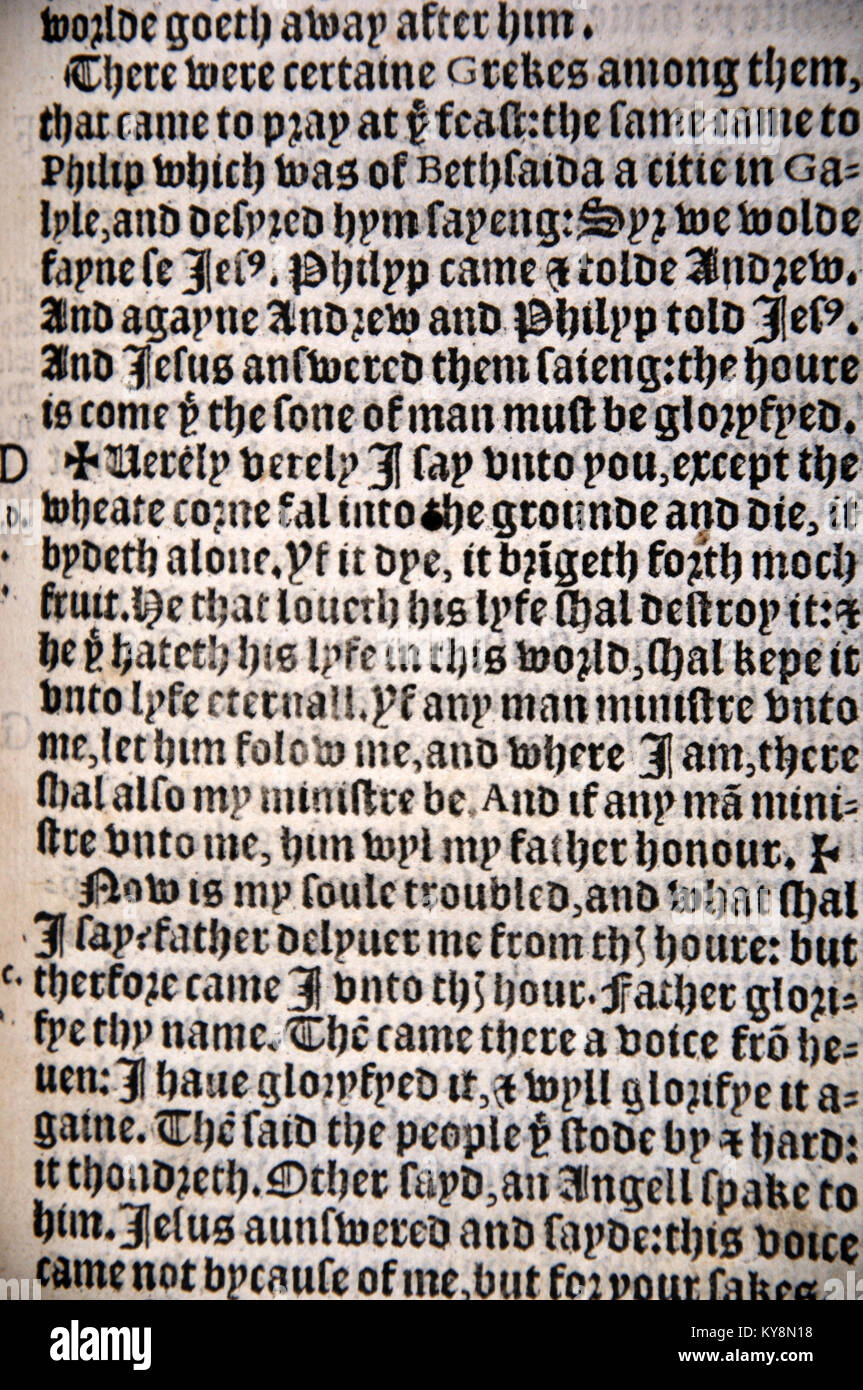 worlde goeth away after him.
There were certaine Grekes among them,
that came to pray at yͭ feast:the same came to
Philip which was of Bethsaida a citie in Ga=
lyle,and desyred hym sayeng:Syr we wolde
fayne se Jesꝰ. Philyp came & tolde Andrew.
And agayne Andrew and Philyp told Jesꝰ.
And Jesus answered them saieng:the houre
is come yͭ the sone of man must be gloryfyed.
D ✠Verely verely I say vnto you,except the
wheate corne fal into the grounde and die, it
bydeth alone.Yf it dye, it brīgeth forth moch
fruit.He that loueth his lyfe shal destroy it:&
he yͭ hateth his lyfe in this world,shal kepe it
vnto lyfe eternall.Yf any man ministre vnto
me,let him folow me,and where I am,there
shal also my ministre be.And if any mā mini=
stre vnto me, him wyl my father honour. ✠
Now is my soule troubled,and what shal
I say?father delyuer me from thꝭ houre: but
c. therfore came I vnto thꝭ hour.Father glori=
fye thy name.Thē came there a voice frō he=
uen:I haue gloryfyed it,& wyll glorifye it a=
gaine.Thē said the people yͭ stode by & hard:
it thondreth.Other sayd,an Angell spake to
him.Jesus aunswered and sayde:this voice
came not bycause of me,but for your sakes.
alamy
Image ID: KY8N18
www.alamy.com